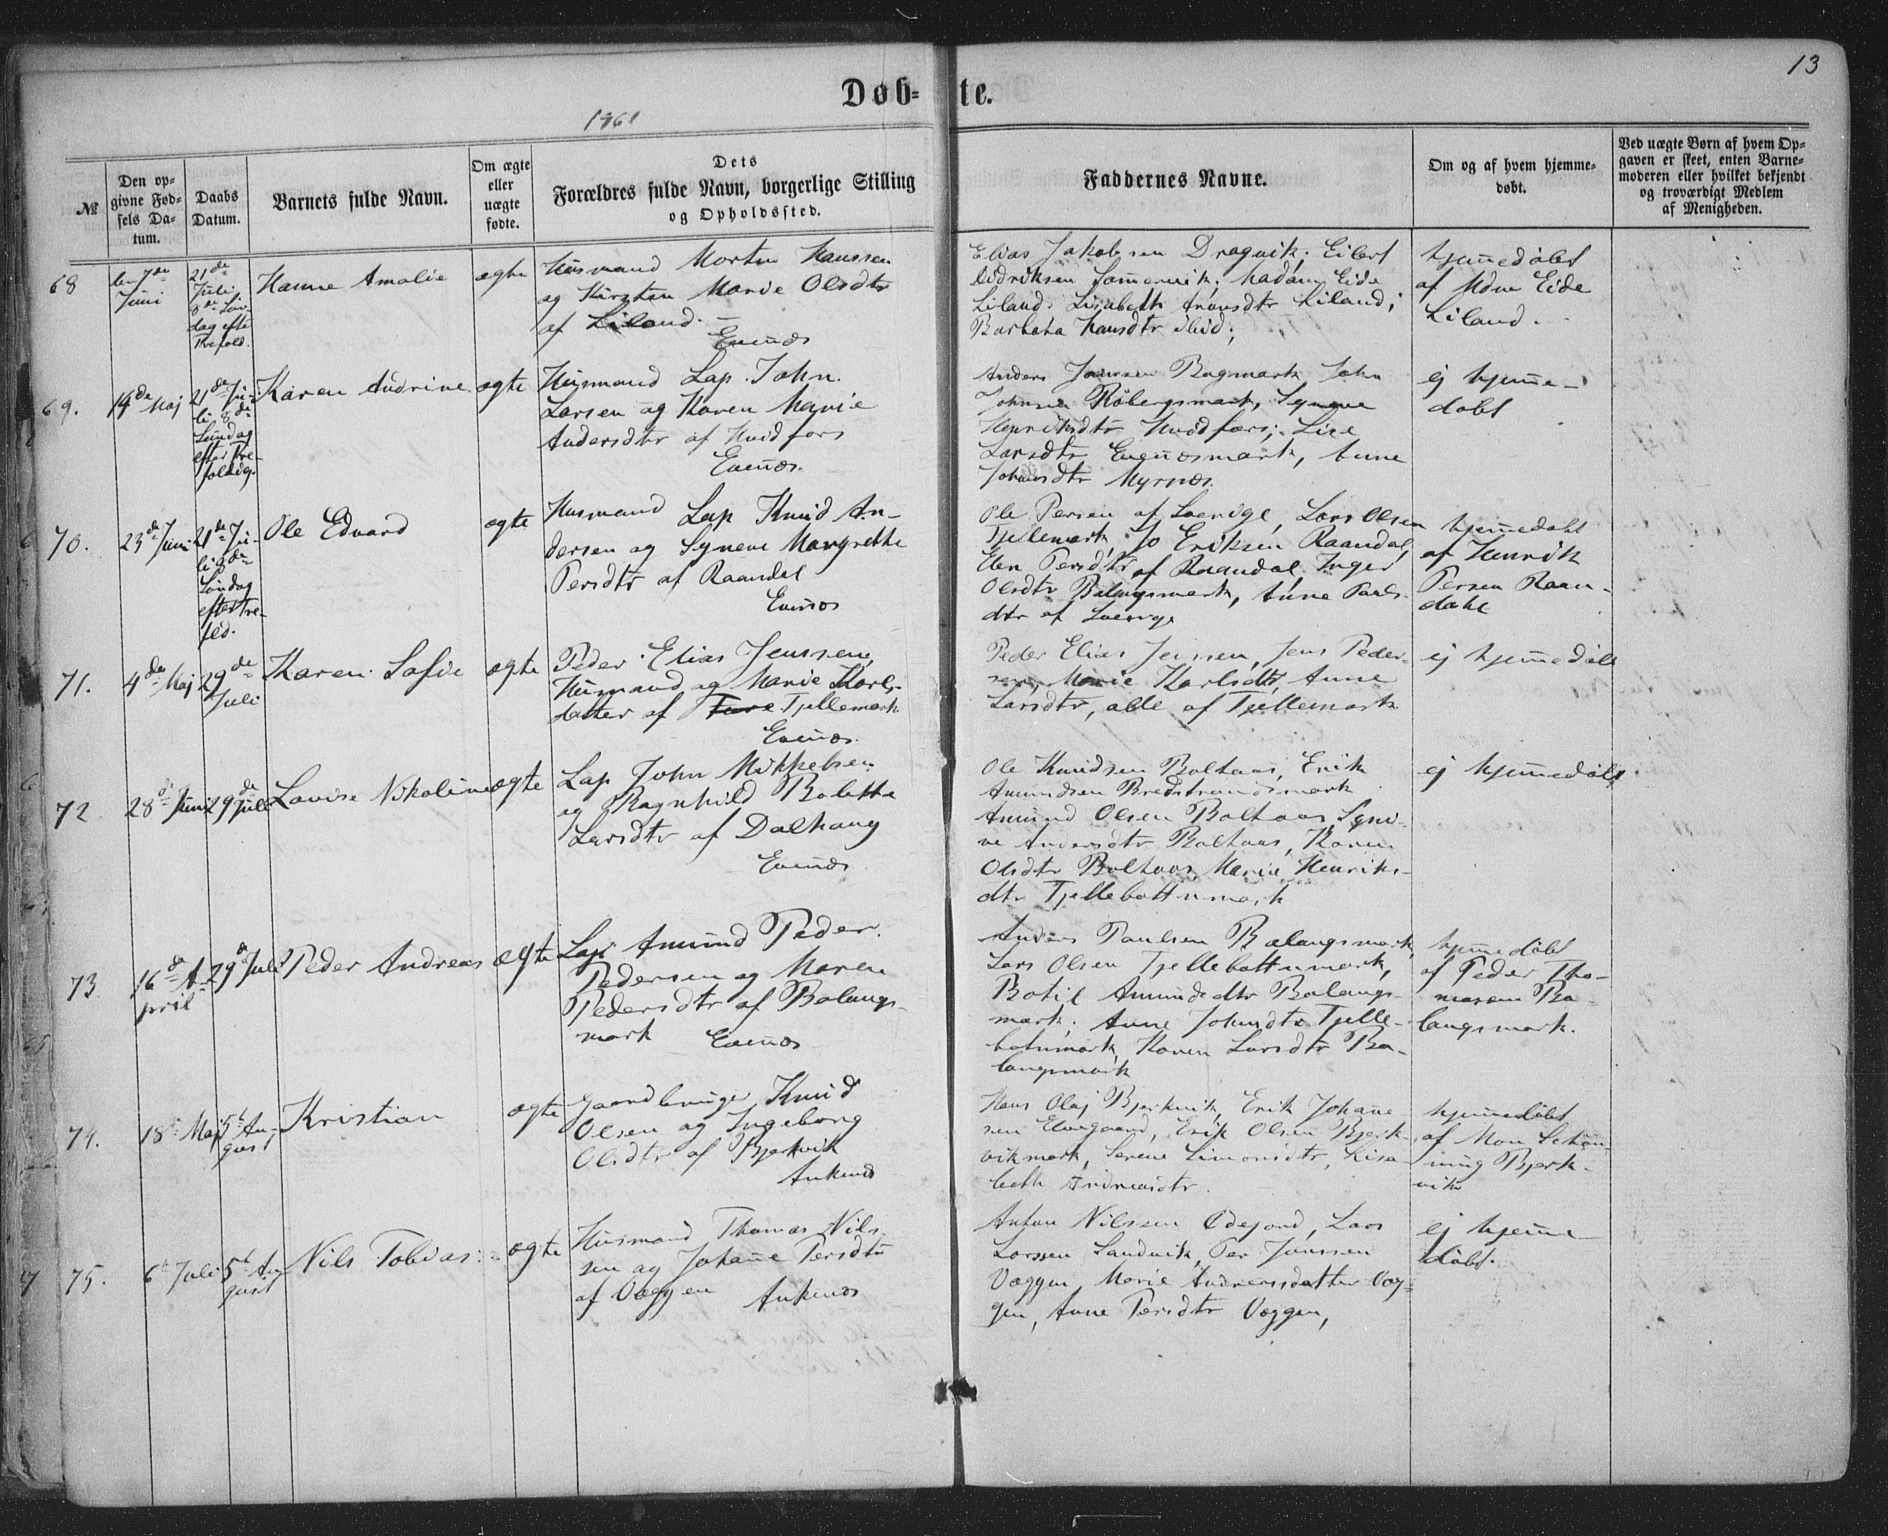 13
Døb-te.
1861
№
Den op-
givne Fød-
sels Da-
tum.
Daabs
Datum.
Barnets fulde Navn.
Om ægte
eller
uægte
fødte.
Dets
Forældres fulde Navn, borgerlige Stilling
og Opholdssted.
Faddernes Navne.
Om og af hvem hjemme-
døbt.
Ved uægte Børn af hvem Op-
gaven er skeet, enten Barne-
moderen eller hvilket bekjendt
og troværdigt Medlem
af Menigheden.
68
7de
Juni
21de
Juli
8de Søn-
dag efter
Trefold.
Hanne Amalie
ægte
Husmand Morten Hanssen
og Kirsten Marie Olsdtr
af Liland.
Evenæs
Elias Jakobsen Dragvik; Eilert
Didriksen Sommervik; Madam Eide
Liland; Lisabeth Hansdtr Liland;
Barbara Hansdtr ibid;
hjemmedøbt
af Mdm Eide
Liland.
69.
19de Maj
21de Ju-
li 8de
Søndag
efter Tre-
foldig.
Karen Andrine
ægte
Husmand Lap John
Larsen og Karen Marie
Andersdtr af Hvidfors
Evenæs.
Anders Jonssen Bogmark John
Johnsen Røbergsmark, Synøve
Henriksdtr Hvidfors; Lise
Larsdtr Evenæsmark, Anne
Johansdtr Myrnæs.
ej hjemme-
døbt
70.
23de Juni
21de Ju-
li 8de
Søndag
efter Tre-
fld.
Ole Edvard
ægte
Husmand Lap Knud An-
dersen og Syneve Margrethe
Persdtr af Raandal
Evenæs
Ole Persen af Sverige, Lars Olsen
Tjellemark, Jo Eriksen Raandal,
Elen Persdtr af Raandal, Inger
Olsdtr Balangsmark, Anne Pauls-
dtr af Sverige
hjemmedøbt
af Henrik
Persen Raan-
dahl
71.
4de Maj
29de
Juli
Karen Sofie
ægte
Peder Elias Jenssen,
Husmand og Marie Karls-
datter af Tjellemark
Evenæs.
Peder Elias Jenssen, Jens Peder-
sen, Marie Karlsdtr, Anne
Larsdtr, alle af Tjellemark
ej hjemmedøbt
72
28de Juni
29de Juli
Lovise Nikoline
ægte
Lap John Mikkelsen
og Ragnhild Boletta
Larsdtr af Dalhaug
Evenæs
Ole Knudsen Boltaas, Erik
Amundsen Bredstrandsmark
Amund Olsen Boltaas, Synø-
ve Andersdtr Boltaas, Karen
Olsdtr Boltaas Marie Henriks-
dtr Tjellebottnmark
ej hjemmedøbt
73
16de A-
pril
29de Juli
Peder Andreas
ægte
Lap Amund Peder
Pedersen og Maren
Pedersdtr af Balangs-
mark
Evenæs
Anders Paulsen Balangsmark,
Lars Olsen Tjellebottnmark,
Botil Amundsdtr Balangs-
mark; Anne Johnsdtr Tjelle-
botnmark, Karen Larsdtr Ba-
langsmark
hjemmedøbt
af Peder Tho-
masen Ba-
langsmark.
74.
18de Maj
5te Au-
gust
Kristian
ægte
Gaardbruger Knud
Olsen og Ingeborg
Olsdtr af Bjerkvik
Ankenæs
Hans Olaj Bjerkvik, Erik Johanne-
sen Elvegaard, Erik Olsen Bjerk-
vikmark, Serene Simonsdtr, Lisa-
beth Andreasdtr.
hjemmedøbt
af Mon Schøn-
ning Bjerk-
vik
75.
6te Juli
5te Au-
gust
Nils Tobias.
ægte
Husmand Thomas Nils-
sen og Johanne Persdtr
af Væggen
Ankenæs
Anton Nilssen Ødejord, Lars
Larssen Sandvik, Per Jonssen
Væggen, Marie Andreasdatter Væg-
gen, Anne Persdtr Væggen,
ej hjemme-
døbt.